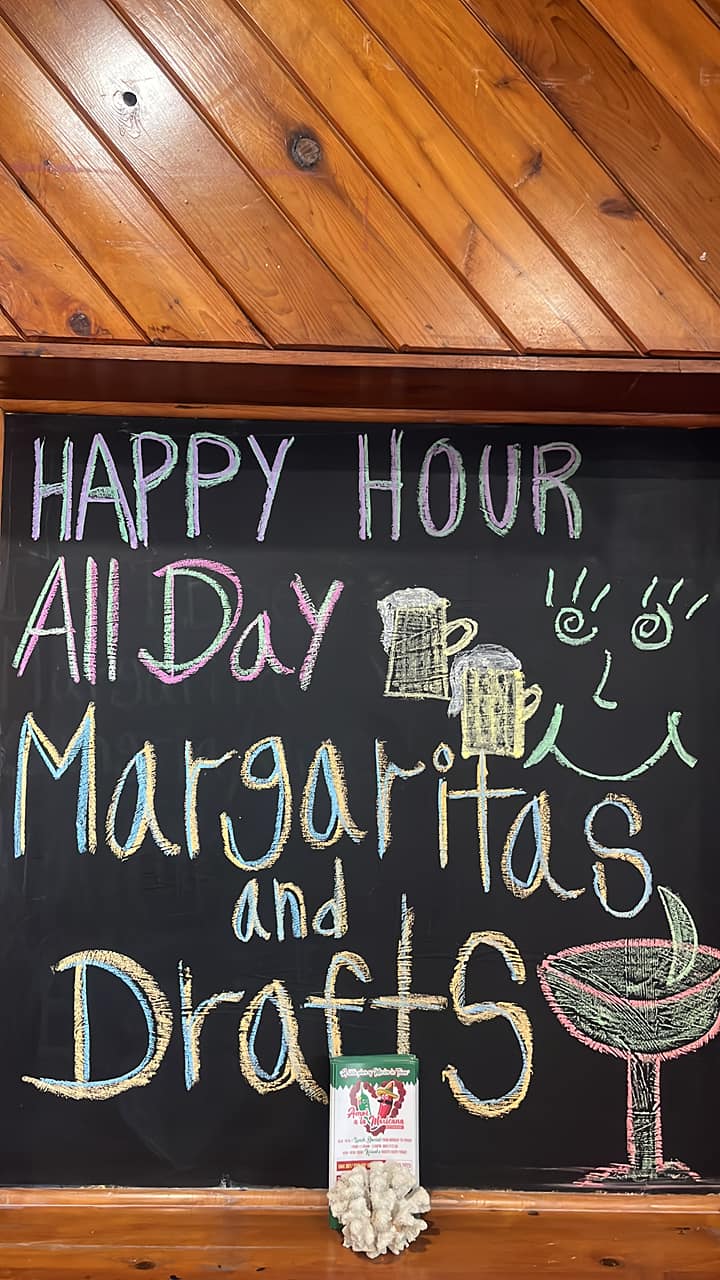 HAPPY HOUR
All Day
Margaritas
and
Drafts
Amor
a la Mexicana